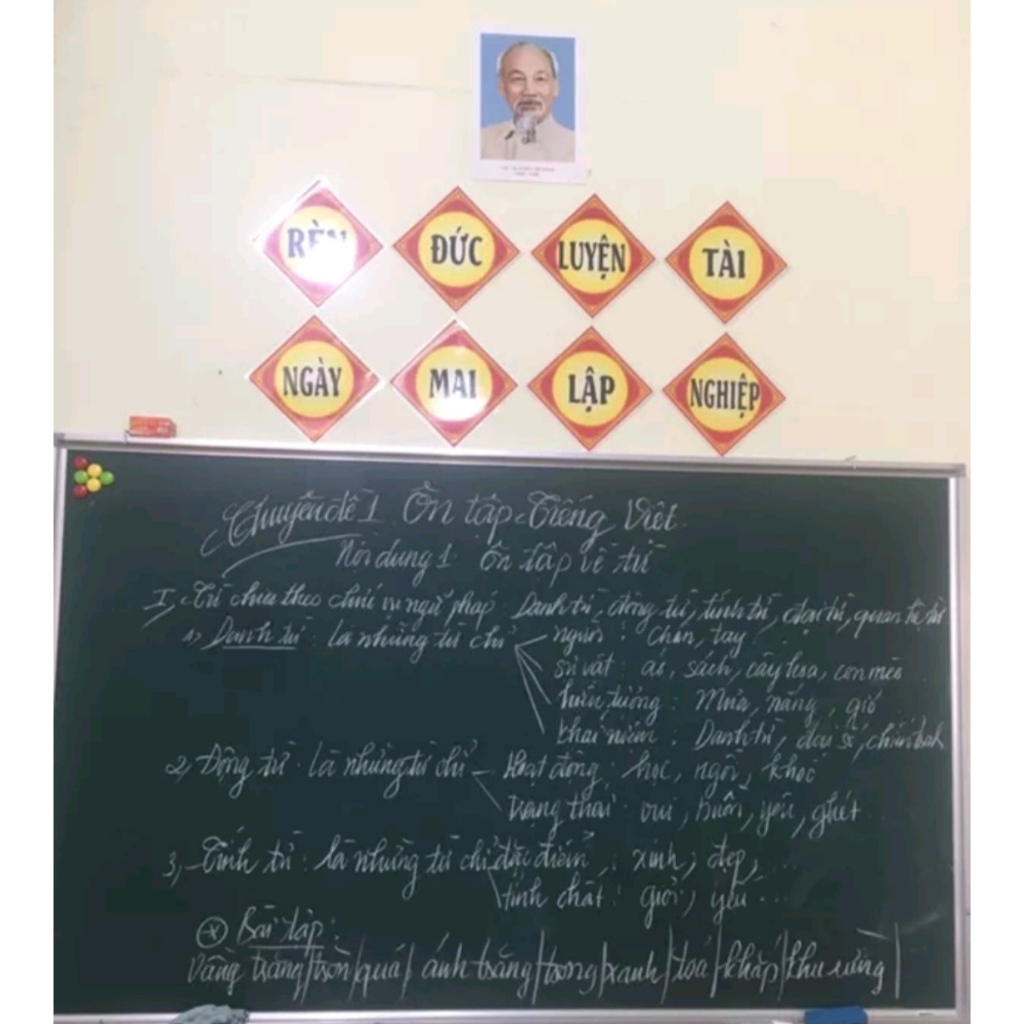 RÈN ĐỨC LUYỆN TÀI
NGÀY MAI LẬP NGHIỆP
Chuyên đề 1 Ôn tập Tiếng Việt
Nội dung 1: Ôn tập về từ
I, Từ chia theo chức vụ ngữ pháp: Danh từ, động từ, tính từ, đại từ, quan hệ từ
1, Danh từ: là những từ chỉ người: chân, tay
sự vật: áo, sách, cây hoa, con mèo
hiện tượng: Mưa, nắng, gió
khái niệm: Danh từ, đại số, chiến tranh
2, Động từ: là những từ chỉ Hoạt động: học, ngồi, khóc
trạng thái: vui, buồn, yêu, ghét
3, Tính từ: là những từ chỉ đặc điểm: xinh, đẹp, ...
tính chất: giỏi, yếu ...
* Bài tập:
Vầng trăng/tròn/quá/ ánh trăng/trong/xanh/toả/khắp/khu rừng/